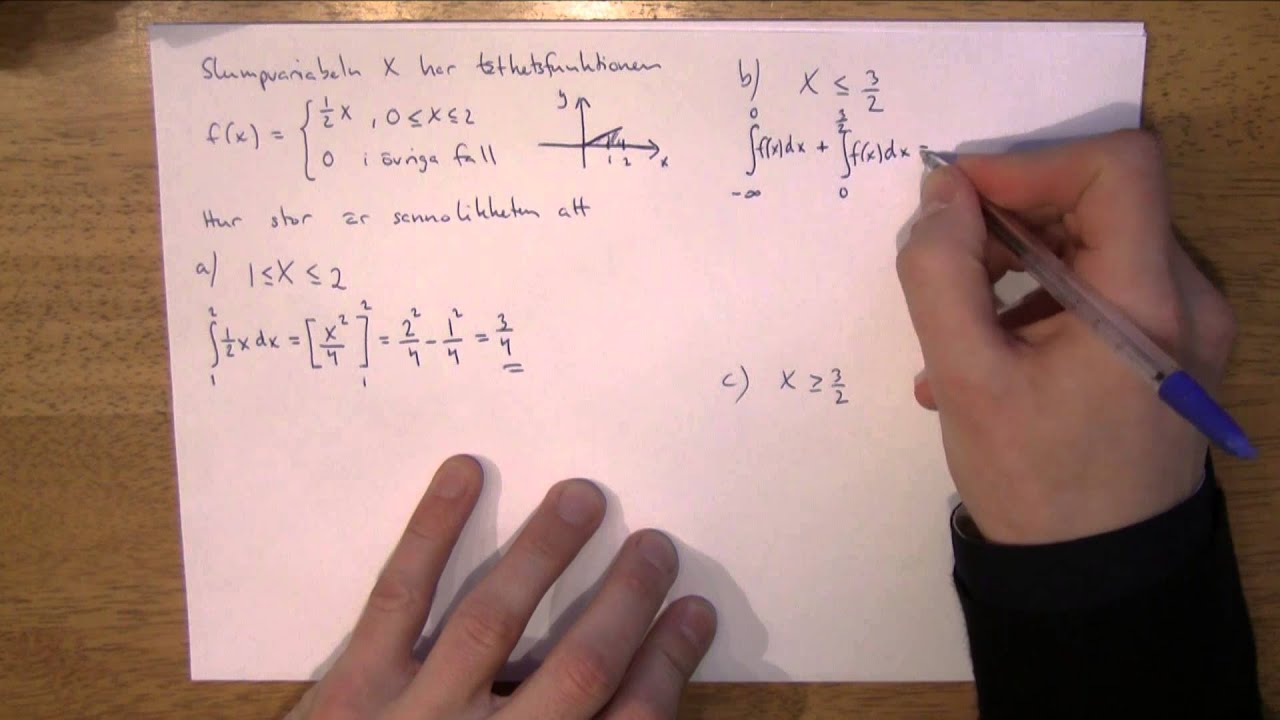 Slumpvariabeln X har täthetsfunktionen
f(x) = { 1/2 x , 0 ≤ x ≤ 2
0 i övriga fall
y
1 2 x
Hur stor är sannolikheten att
a) 1 ≤ X ≤ 2
∫₁² 1/2 x dx = [x²/4]₁² = 2²/4 - 1²/4 = 3/4
b) X ≤ 3/2
∫₋∞⁰ f(x)dx + ∫₀^(3/2) f(x)dx =
c) X ≥ 3/2